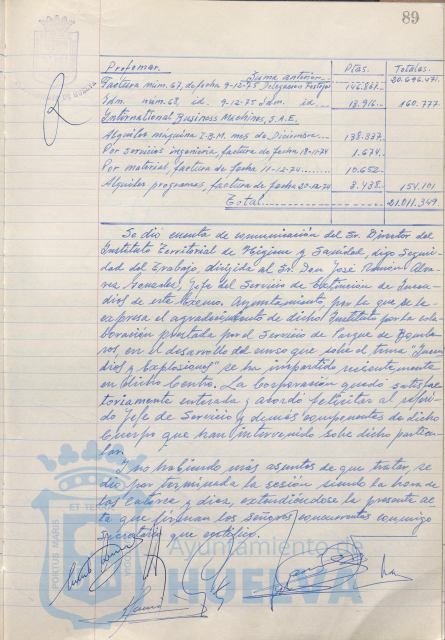 89
Profemar.
Ptas.
Totales.
Suma anterior
20.696.471.
Factura núm. 67, de fecha 9-12-75 Delegación Festejos
146.861.-
Idm. núm. 68, id. 9-12-75 Idm. id.
13.916.-
160.777.-
International Business Machines, S.A.E.
Alquiler máquina I.B.M. mes de Diciembre
138.337.
Por servicios ingeniería, factura de fecha 18-11-74
1.674.-
Por material, factura de fecha 11-12-74
10.652.-
Alquiler programas, factura de fecha 20-12-74
3.438.-
154.101
Total
21.011.349.
Se dio cuenta de comunicación del Sr. Director del
Instituto Territorial de Higiene y Sanidad, digo Seguri-
dad del Trabajo, dirigida al Sr. Don José Ramón Alva-
rez González, Jefe del Servicio de Extinción de Incen-
dios de este Excmo. Ayuntamiento por la que se le
expresa el agradecimiento de dicho Instituto por la cola-
boración prestada por el Servicio de Parque de Bombe-
ros, en el desarrollo del curso que sobre el tema "Incen-
dios y Explosiones" se ha impartido recientemente
en dicho Centro. La Corporación quedó satisfac-
toriamente enterada y acordó felicitar al referi-
do Jefe de Servicio y demás componentes de dicho
Cuerpo que han intervenido sobre dicho particu-
lar.
Y no habiendo más asuntos de que tratar, se
dio por terminada la sesión siendo la hora de
las catorce y diez, extendiéndose la presente ac-
ta que firman los señores concurrentes conmigo
Secretario que certifico.
PORTUS MARIS
ET TE
Ayuntamiento de
HUELVA